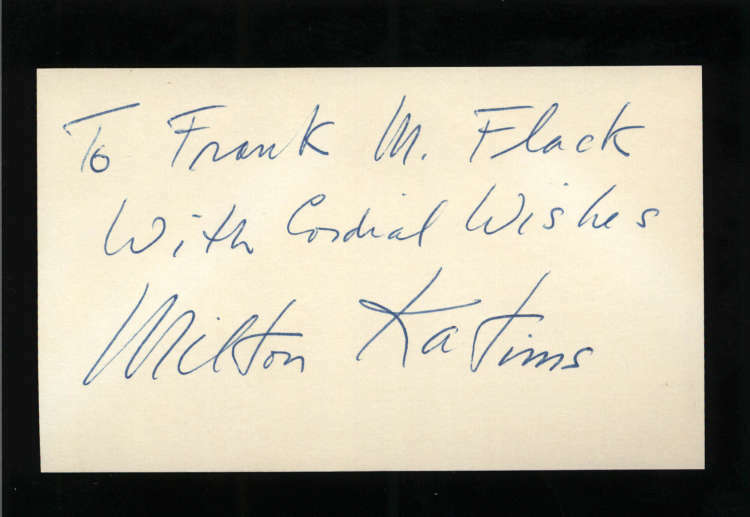 To Frank M. Flack
With Cordial Wishes
Milton Katims